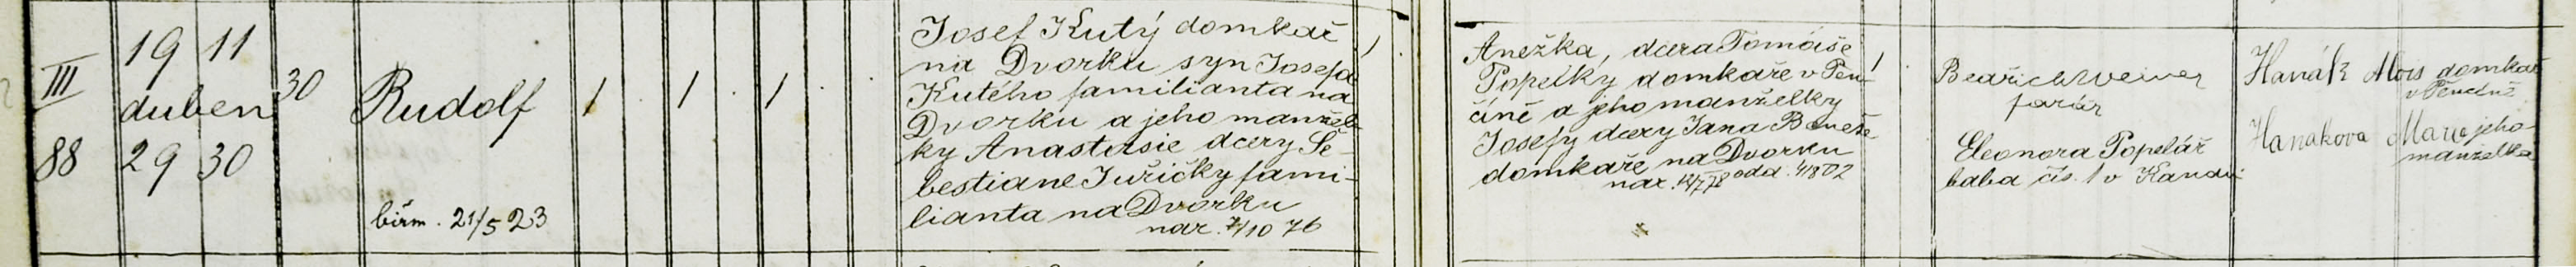 III
88
19 11
duben
29 30
30
Rudolf
biřm. 21/5 23
1 1 1
Josef Kutý domkař
na Dvorku syn Josefa
Kutého familianta na
Dvorku a jeho manžel-
ky Anastasie dcery Še-
bestiane Juřičky fami-
lianta na Dvorku
nar. 7/10 76
1
Anežka, dcera Tomáše
Popelky domkaře v Pěn-
číně a jeho manželky
Josefy dcery Jana Beneše
domkaře na Dvorku
nar. odd.
1
Bedřich Weiner
farář
Eleonora Popelář
baba čís. 1 v
Hanák Alois domkař
v Pěnčíně
Hanakova Marie jeho
manželka